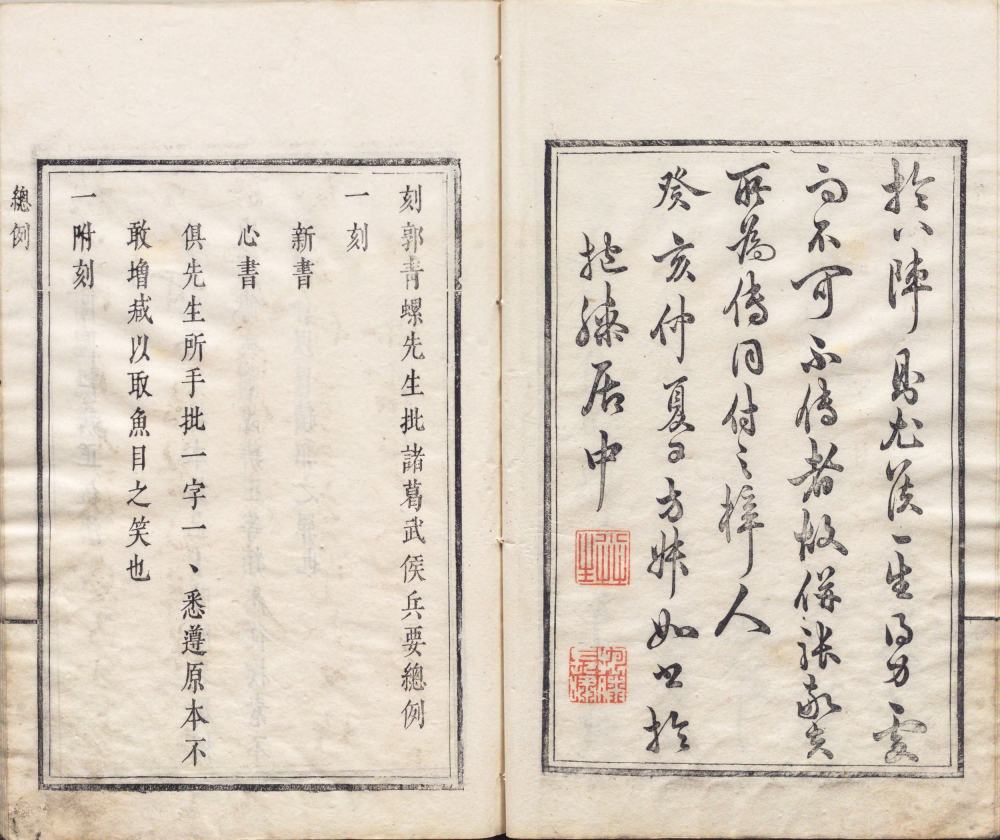 於八陣圖尤侯一生得力處
而不可不傳者故併張敬夫
所為傳同付之梓人
癸亥仲夏日方如如書於
抱膝居中
刻郭青螺先生批諸葛武侯兵要總例
一刻
新書
心書
俱先生所手批一字一、悉遵原本不
敢增減以取魚目之笑也
一附刻
總例